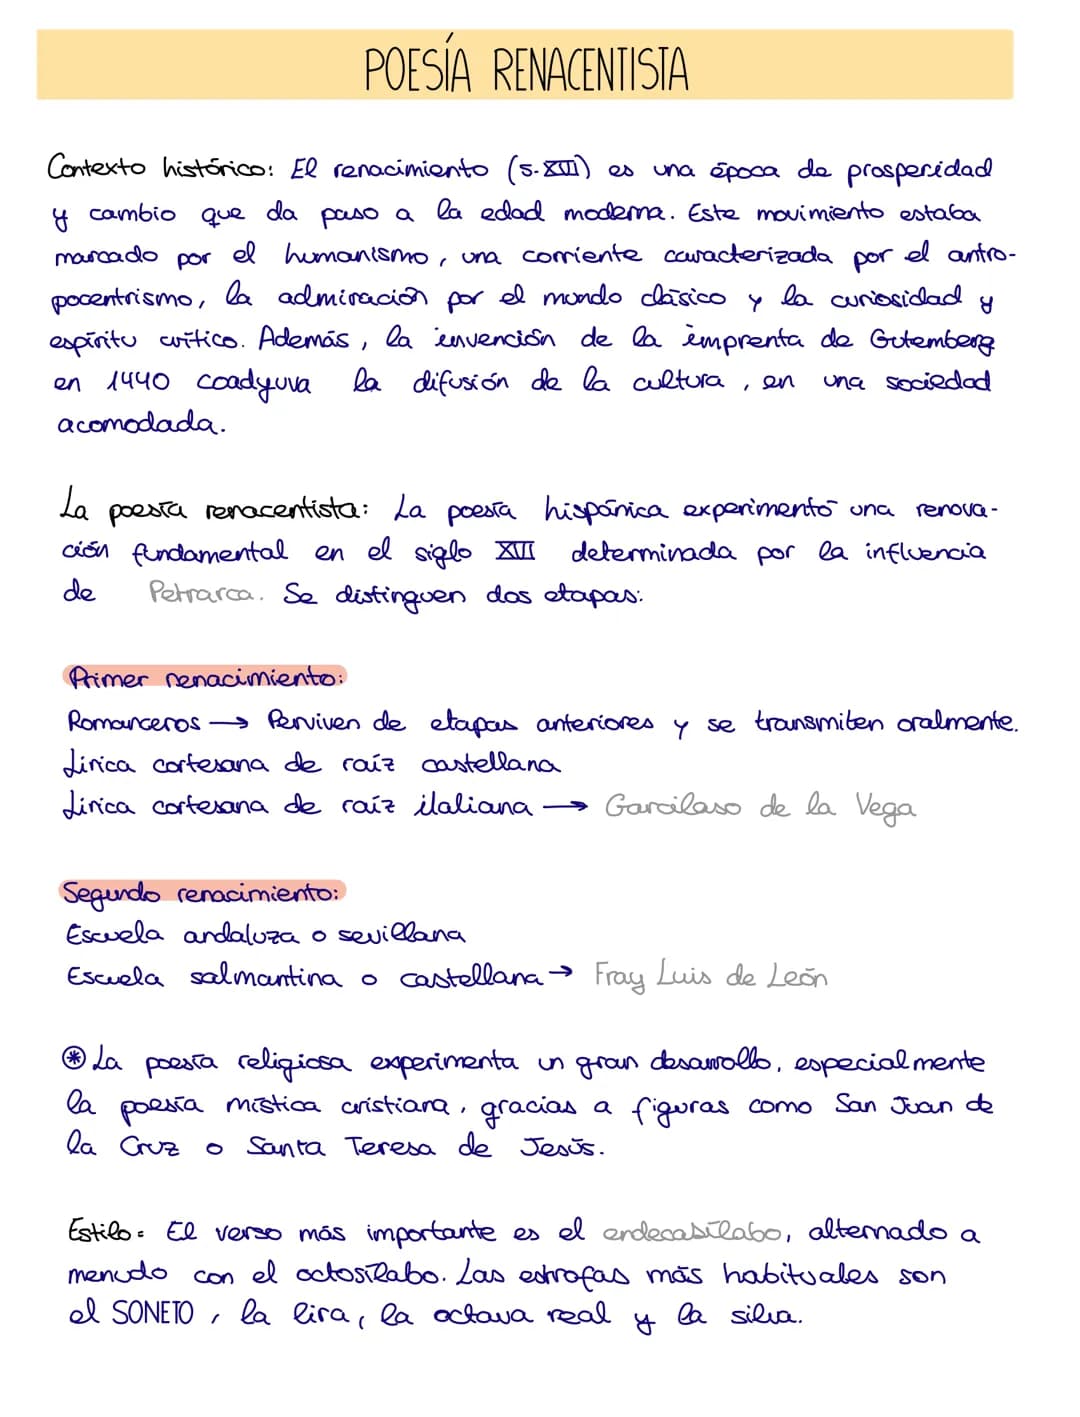 POESÍA RENACENTISTA
Contexto histórico: El renacimiento (s.XVI) es una época de prosperidad
y cambio que da paso a la edad moderna. Este movimiento estaba
marcado por el humanismo, una corriente caracterizada por el antro-
pocentrismo, la admiración por el mundo clásico y la curiosidad y
espíritu crítico. Además, la invención de la imprenta de Gutemberg
en 1440 coadyuva la difusión de la cultura, en una sociedad
acomodada.
La poesía renacentista: La poesía hispánica experimentó una renova-
ción fundamental en el siglo XVI determinada por la influencia
de Petrarca. Se distinguen dos etapas:
Primer renacimiento:
Romanceros → Perviven de etapas anteriores y se transmiten oralmente.
Lírica cortesana de raíz castellana
Lírica cortesana de raíz italiana → Garcilaso de la Vega
Segundo renacimiento:
Escuela andaluza o sevillana
Escuela salmantina o castellana → Fray Luis de León
* La poesía religiosa experimenta un gran desarrollo, especialmente
la poesía mística cristiana, gracias a figuras como San Juan de
la Cruz o Santa Teresa de Jesús.
Estilo: El verso más importante es el endecasílabo, alternado a
menudo con el octosílabo. Las estrofas más habituales son
el SONETO, la lira, la octava real y la silva.